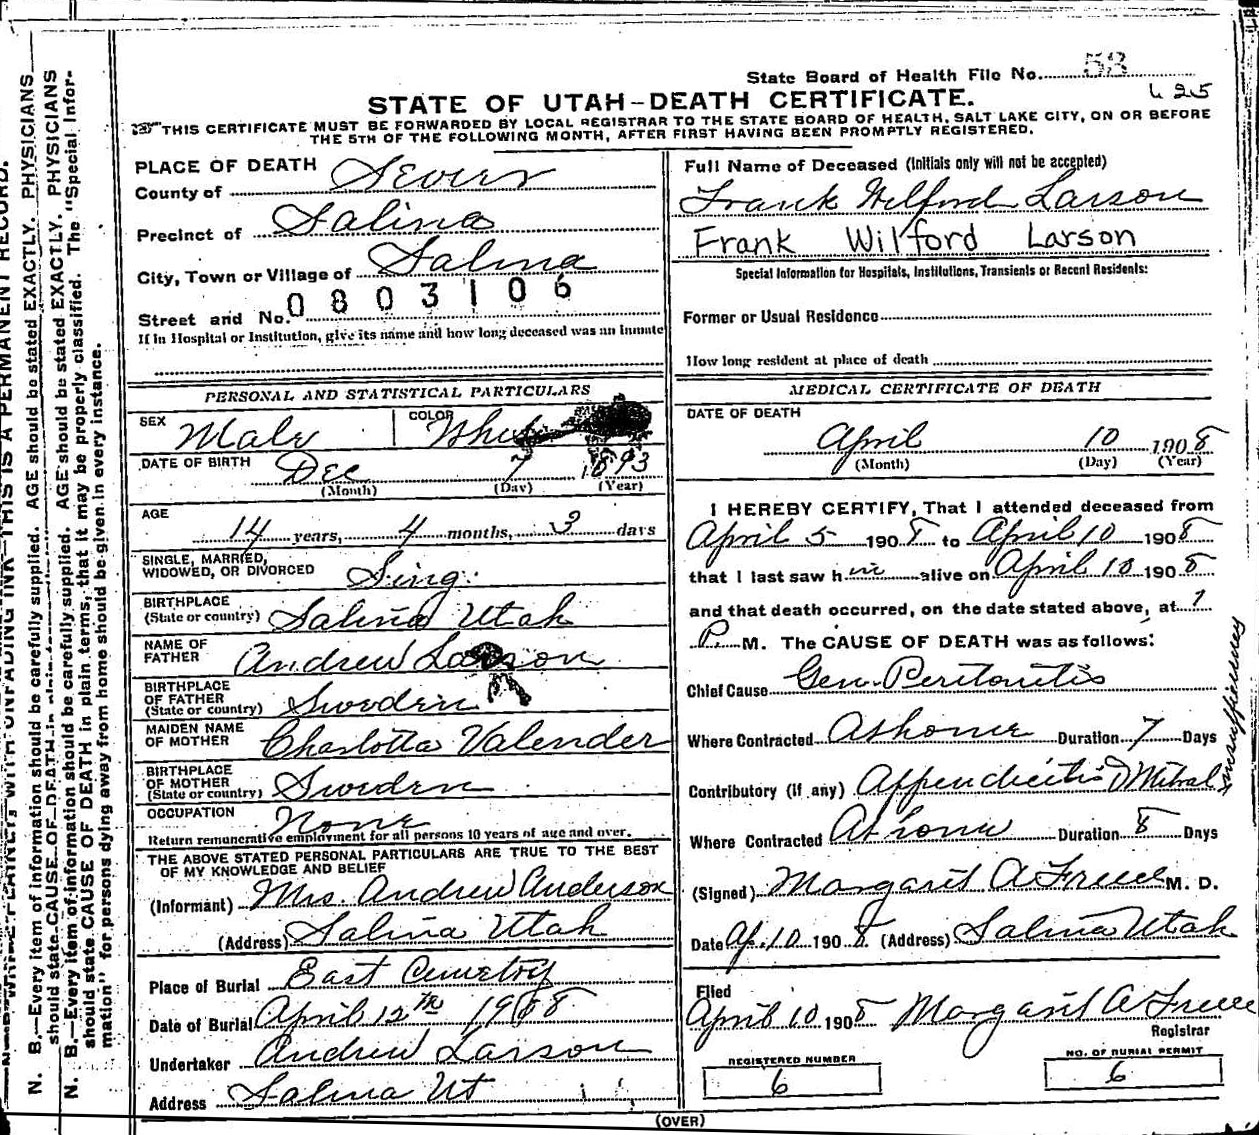 State Board of Health File No. 53
625
STATE OF UTAH-DEATH CERTIFICATE.
THIS CERTIFICATE MUST BE FORWARDED BY LOCAL REGISTRAR TO THE STATE BOARD OF HEALTH, SALT LAKE CITY, ON OR BEFORE
THE 5TH OF THE FOLLOWING MONTH, AFTER FIRST HAVING BEEN PROMPTLY REGISTERED.
PLACE OF DEATH
County of Sevier
Precinct of Salina
City, Town or Village of Salina
0803106
Street and No.
If in Hospital or Institution, give its name and how long deceased was an inmate
Full Name of Deceased (Initials only will not be accepted)
Frank Wilford Larson
Frank Wilford Larson
Special Information for Hospitals, Institutions, Transients or Recent Residents:
Former or Usual Residence
How long resident at place of death
PERSONAL AND STATISTICAL PARTICULARS
SEX Male COLOR White
DATE OF BIRTH Dec 7 1893
(Month) (Day) (Year)
AGE 14 years, 4 months, 3 days
SINGLE, MARRIED,
WIDOWED, OR DIVORCED Sing.
BIRTHPLACE
(State or country) Salina Utah
NAME OF
FATHER Andrew Larson
BIRTHPLACE
OF FATHER
(State or country) Sweden
MAIDEN NAME
OF MOTHER Charlotta Valender
BIRTHPLACE
OF MOTHER
(State or country) Sweden
OCCUPATION None
Return remunerative employment for all persons 10 years of age and over.
THE ABOVE STATED PERSONAL PARTICULARS ARE TRUE TO THE BEST
OF MY KNOWLEDGE AND BELIEF
(Informant) Mrs. Andrew Anderson
(Address) Salina Utah
Place of Burial East Cemetry
Date of Burial April 12th 1908
Undertaker Andrew Larson
Address Salina Ut
MEDICAL CERTIFICATE OF DEATH
DATE OF DEATH
April 10 1908
(Month) (Day) (Year)
I HEREBY CERTIFY, That I attended deceased from
April 5 1908 to April 10 1908
that I last saw him alive on April 10 1908
and that death occurred, on the date stated above, at 1
P. M. The CAUSE OF DEATH was as follows:
Chief Cause Gen. Peritonitis
Where Contracted At home Duration 7 Days
Contributory (if any) Appendicitis & Mitral
insufficiency
Where Contracted At home Duration 8 Days
(Signed) Margaret A Freece M. D.
Date Ap. 10 1908 (Address) Salina Utah
Filed
April 10 1908 Margaret A Freece
Registrar
REGISTERED NUMBER
6
NO. OF BURIAL PERMIT
6
(OVER)
N. B.—Every item of information should be carefully supplied. AGE should be stated EXACTLY. PHYSICIANS
should state CAUSE OF DEATH in plain terms, that it may be properly classified. The "Special Infor-
mation" for persons dying away from home should be given in every instance.
N. B.—Every item of information should be carefully supplied. AGE should be stated EXACTLY. PHYSICIANS
should state CAUSE OF DEATH in plain
WRITE PLAINLY, WITH UNFADING INK—THIS IS A PERMANENT RECORD.